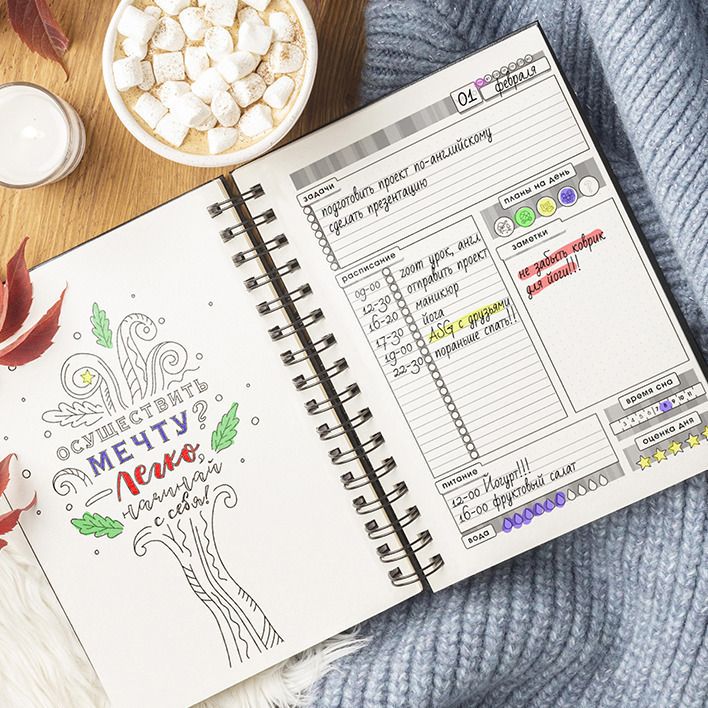 ОСУЩЕСТВИТЬ
МЕЧТУ?
— Легко,
начинай
с себя!
01 февраля
задачи
подготовить проект по-английскому
сделать презентацию
расписание
09-00 zoom урок, англ
12-30 отправить проект
16-20 маникюр
17-30 йога
19-00 ASG с друзьями
22-30 пораньше спать!!
планы на день
заметки
не забыть коврик
для йоги!!!
время сна
3 4 5 6 7 8 9 10 11
оценка дня
питание
12-00 Йогурт!!!
16-00 фруктовый салат
вода